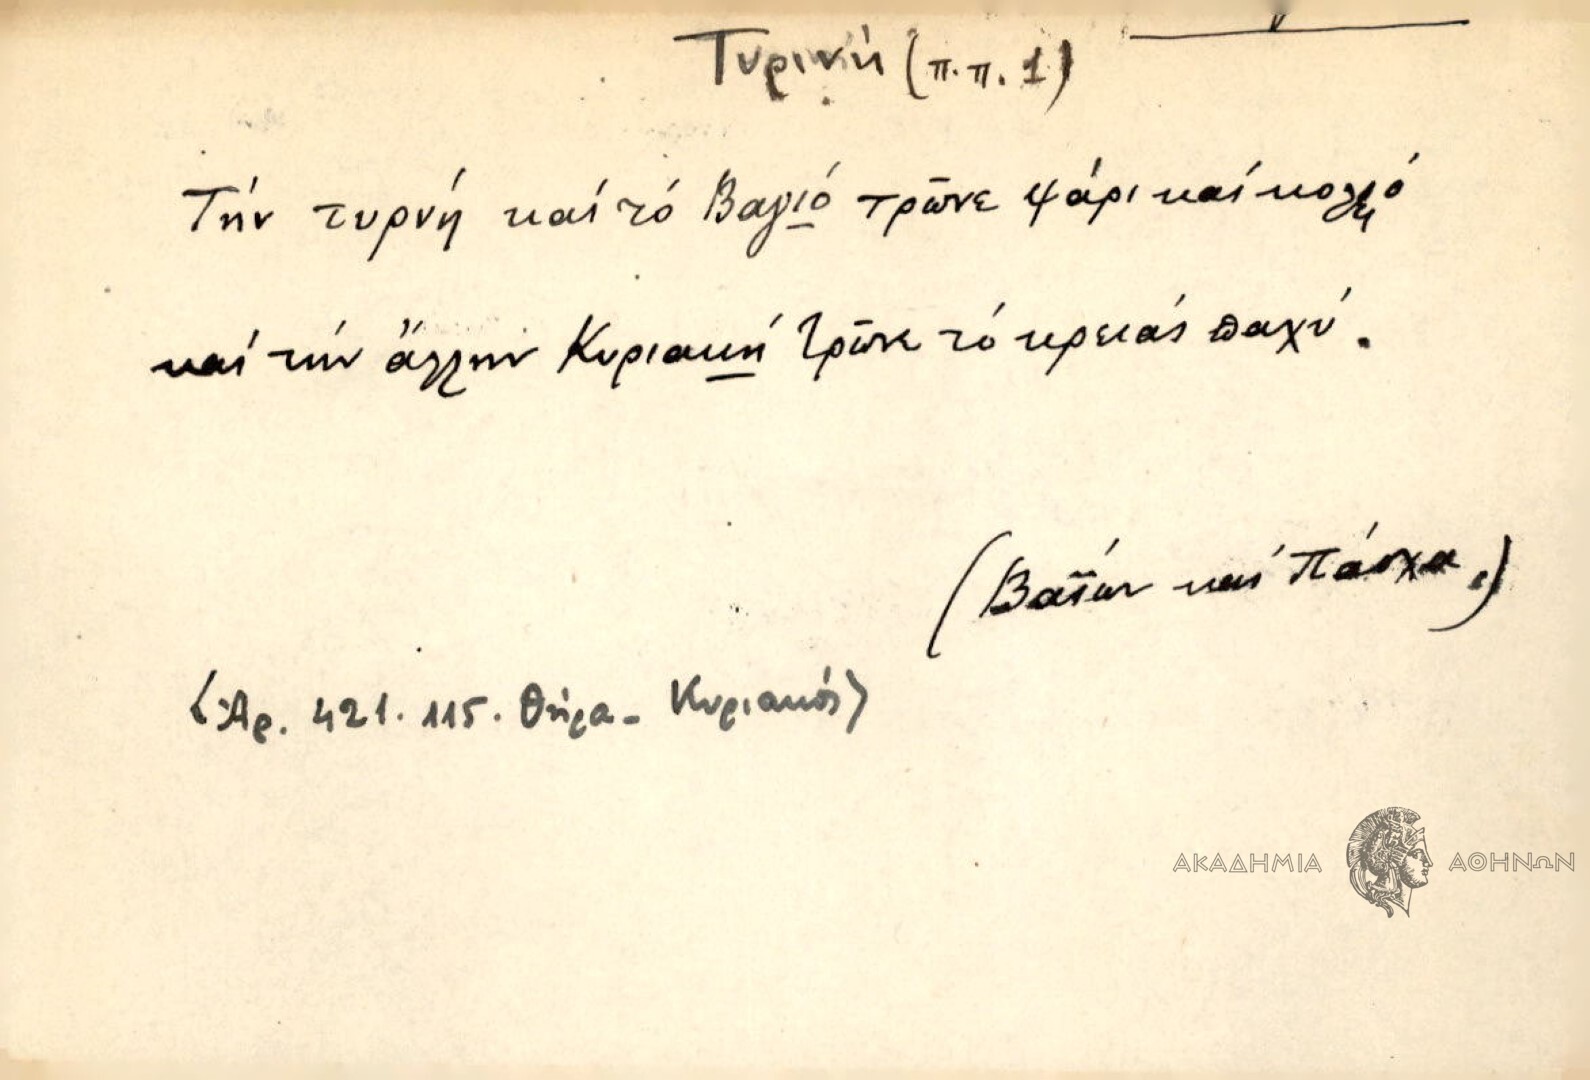 Τυρινή (π.π. 1)
Τήν τυρνή καί τό Βαγιό τρῶνε ψάρι καί κολιό
καί τήν ἄλλην Κυριακή τρῶνε τό κρειάς παχύ.
(Βαΐων καί Πάσχα.)
〈Ἀρ. 421. 115. Θήρα - Κυριακός〉
ΑΚΑΔΗΜΙΑ ΑΘΗΝΩΝ